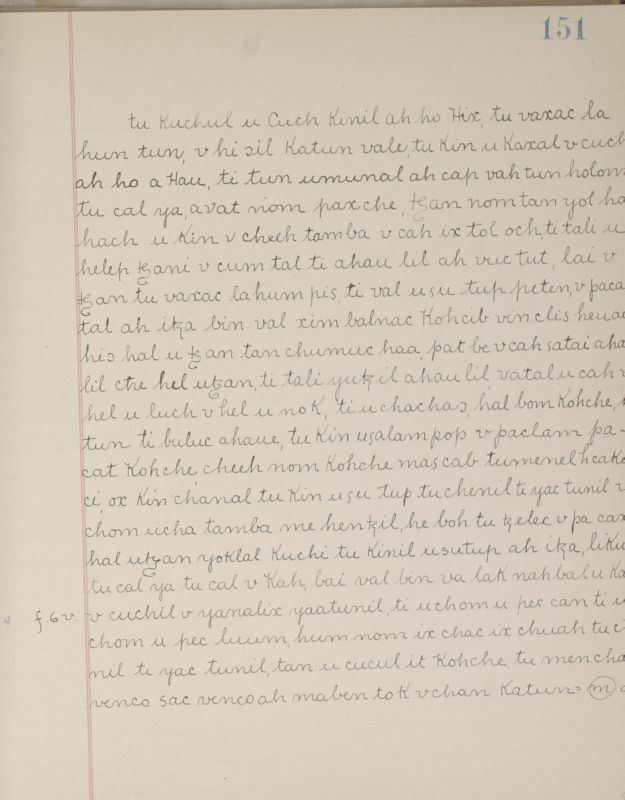 151
tu Kuchul u Cuch Kinil ah ho Hix, tu vaxac la
hun tun, v hi sil Katun vale, tu Kin u Kaxal v cuch
ah ho a Hau, ti tun umunal ah cap vah tun holom
tu cal ya, avat nom pax che, ꜩan nom tan yol ha
hach u Kin v cheeh tamba v cah ix tol och, ti tali u
helep ꜩani v cum tal ti ahau lil ah vuc tut, lai v
ꜩan tu vaxac lahum pis, ti val u su tup peten, v paca
tal ah itza bin val xim balnac Kohcib vin clis
his hal u ꜩan tan chumuc haa pat be v cah satai aha
lil che hel uꜩan, ti tali yuꜩil ahau lil, vatal u cah
hel u luch v hel u nok, ti u chachas, hal bom Kohche,
tun ti buluc ahaue, tu Kin u salam pop v paclam pa-
cat Kohche, cheeh nom Kohche mas cab tumenel
ci, ox Kin chanal tu Kin u su tup tu chenil ti yac tunil v
chom ucha tamba me henꜩil, he boh tu ꜩelec v pa cax
hal uꜩan yoklal Kuchi tu Kinil u sutup ah itza,
tu cal ya tu cal v Kah, bai val bin va lak nah balu Ka
4 f. 6 v. v cuchil v yanalix yaatunil, ti u chom u pec can ti u
chom u pec luum, hum nom ix chac ix chuah tu c
nil ti yac tunil, tan u cucul it Kohche, tu men cha
venco sac venco ah maben tok v chan Katun= m